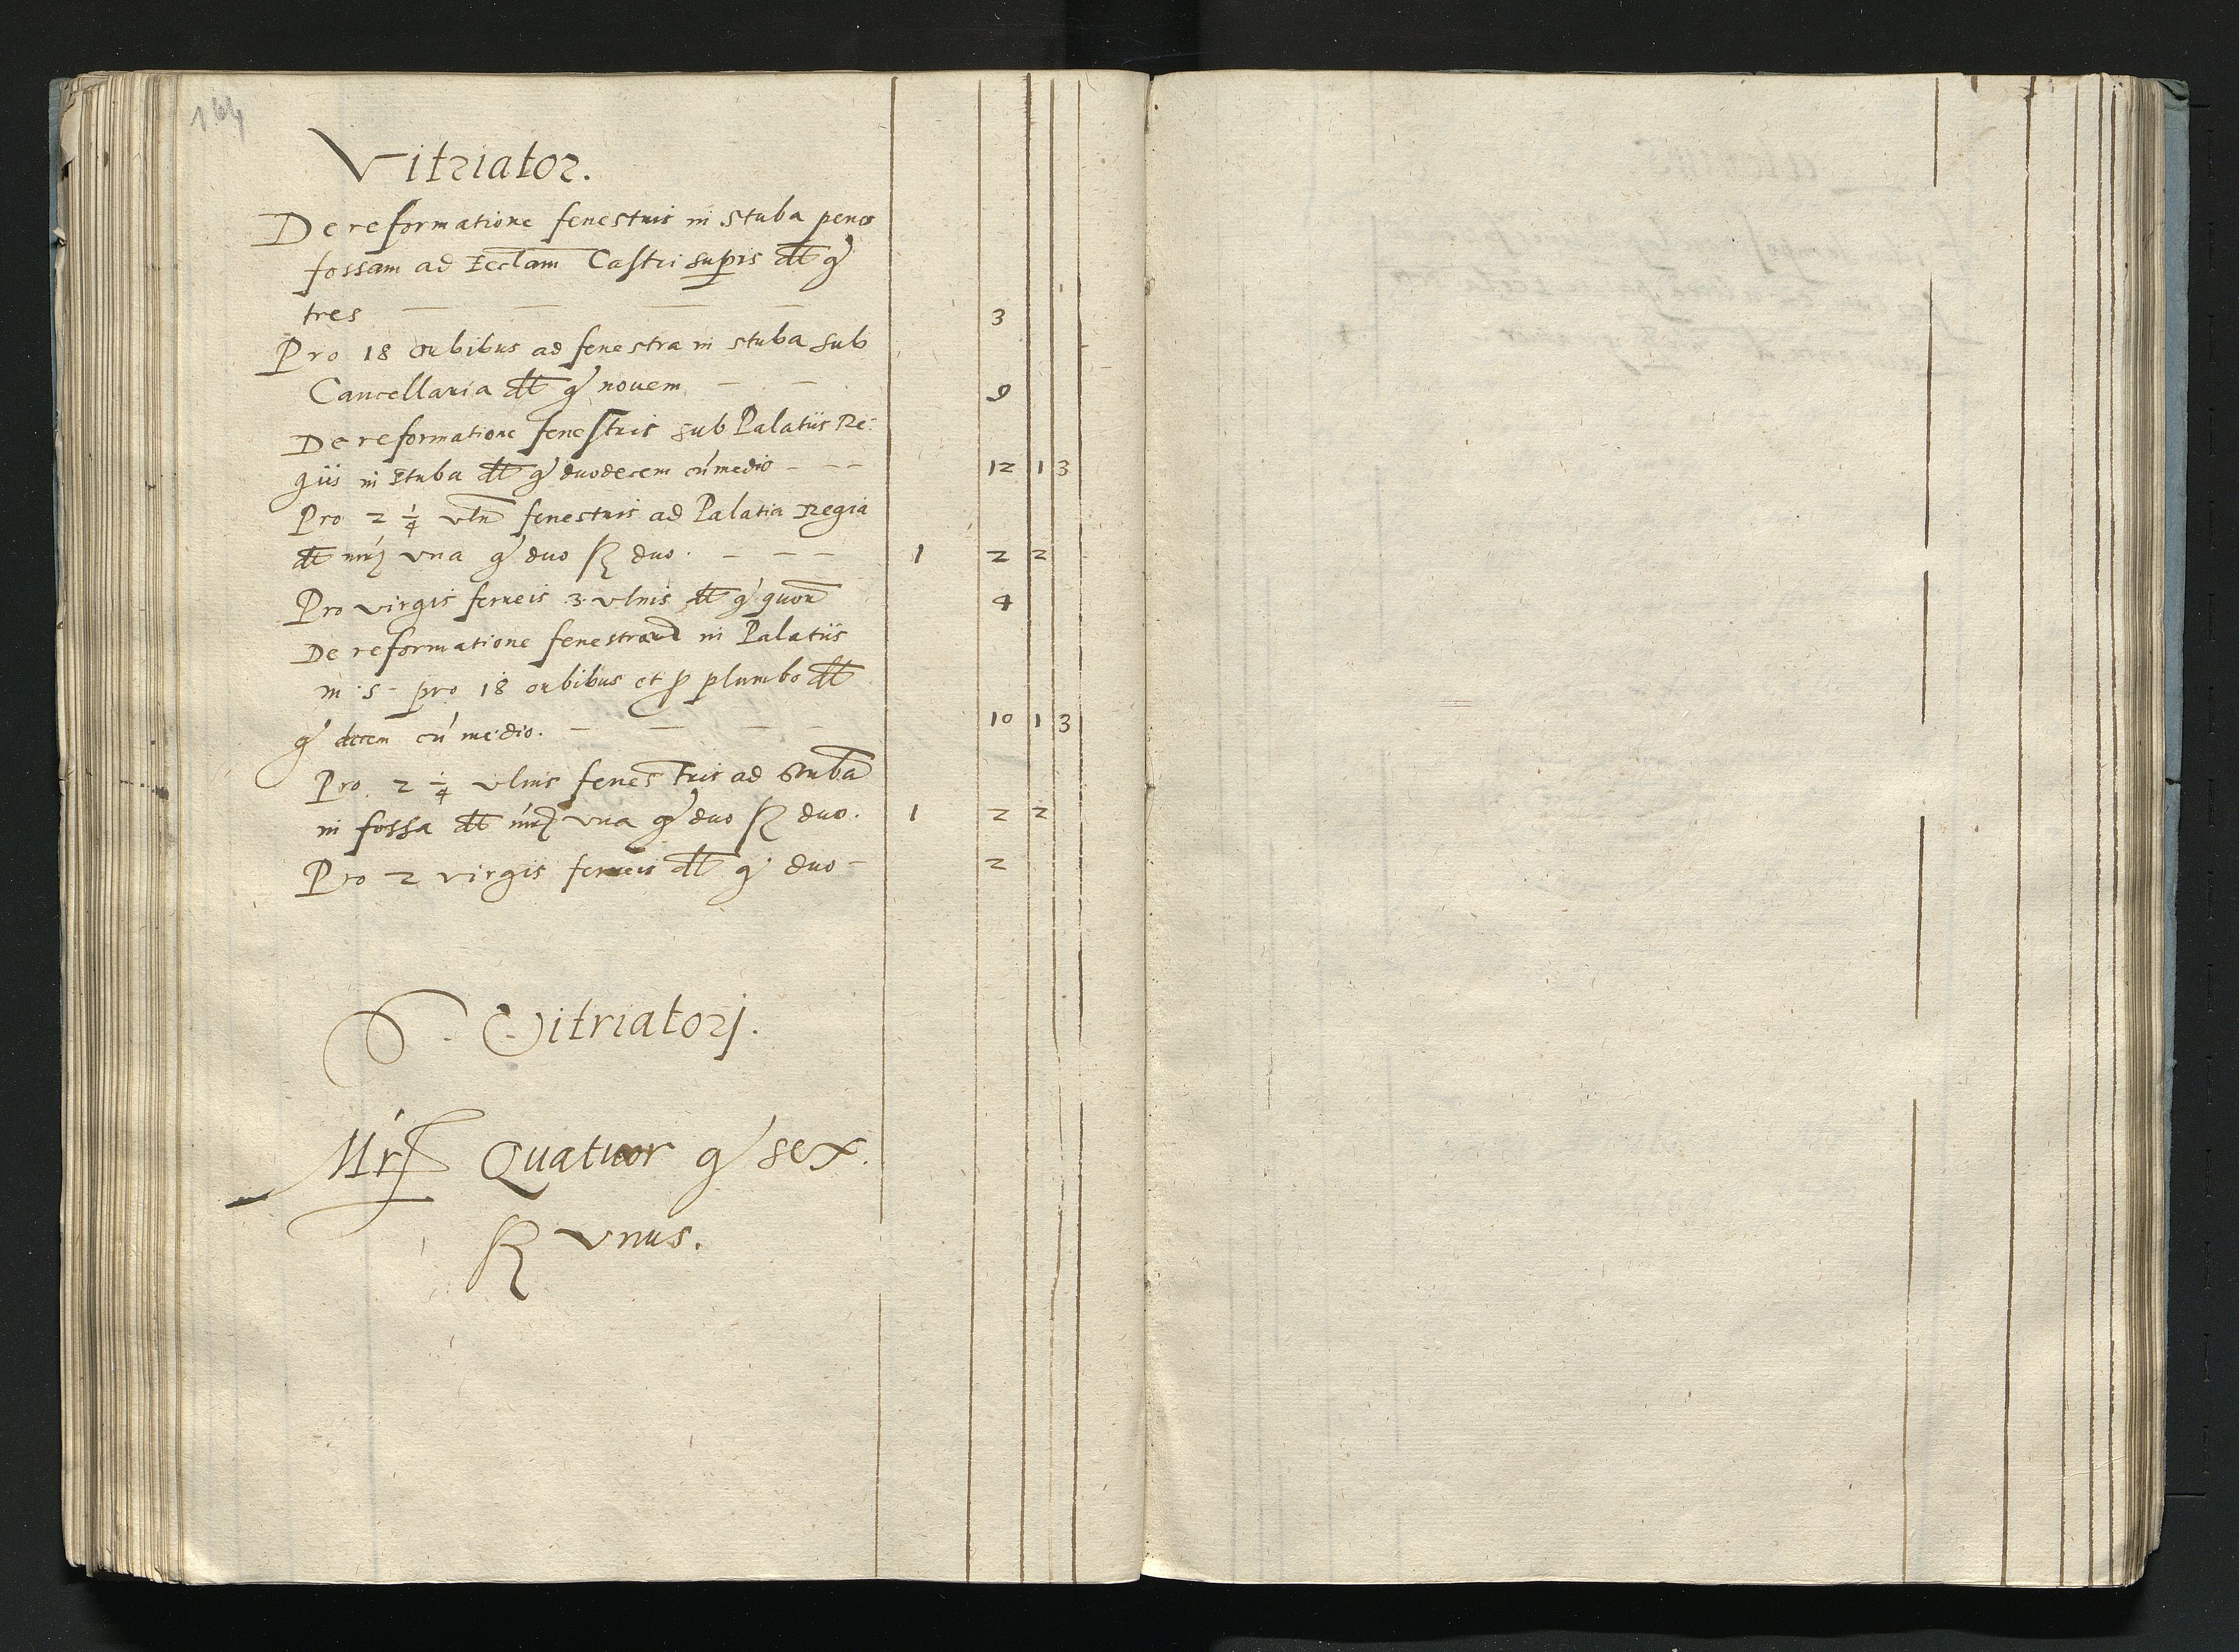 164
Vitriator.
De reformatione fenestris in stuba penes
fossam ad Ecclam Castri supis dt g
tres 3
Pro 18 orbibus ad fenestra in stuba sub
Cancellaria dt g nouem 9
De reformatione fenestris sub Palatiis Re:
giis in stuba dt g duodecem cu medio 12 1 3
Pro 2 1/4 vln fenestris ad Palatia Regia
dt mrc vna g duo ß duo. 1 2 2
Pro virgis ferreis 3 vlnis dt g quor 4
De reformatione fenestrar in Palatiis
m. s. pro 18 orbibus et p plumbo dt
g decem cu medio. 10 1 3
Pro 2 1/4 vlnis fenestris ad Stuba
in fossa dt mrc vna g duo ß duo. 1 2 2
Pro 2 virgis ferreis dt g duo 2
Vitriatorj.
Mrc Quatuor g sex.
ß vnus.